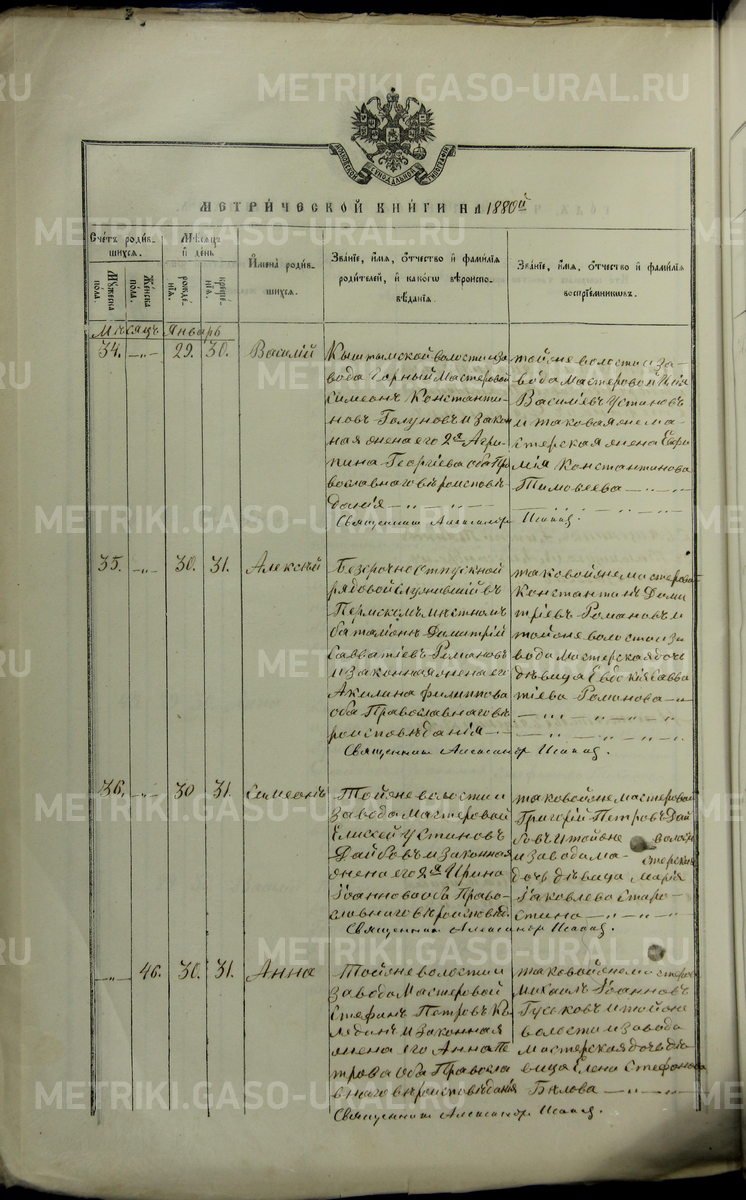 METRIKI.GASO-URAL.RU
МЕТРИ́ЧЕСКОЙ КНИ́ГИ НА 1880й
Счетъ роди́в-
шихся.
Му́жеска
пола.
Же́нска
пола.
Мѣсяцъ
и день
рожде-
нія.
креще-
нія.
Имена роди́в-
шихся.
Званіе, имя, отчество и фамилія
родителей, и какого вѣроиспо-
вѣданія.
Званіе, имя, отчество и фамилія
воспріемниковъ.
Мѣсяцъ Январь
34. —"— 29. 30. Василій
Кыштымской волости и за-
вода Горный Мастеровой
Симеонъ Константи-
новъ Голуновъ и закон
ная жена его 2я Агри-
пина Георгіева оба Пра
вославнаго вѣроисповѣ-
данія
той же волости и за-
вода Мастеровой
Василіевъ Устиновъ
и таковая же ма-
стерская жена Евфи
мія Константинова
Тимовеева
Священникъ Александр
35. —"— 30. 31. Алексѣй
Безсрочно отпускной
рядовой служившій въ
Пермскомъ мѣстномъ
баталіонѣ Димитрій
Савватіевъ Романовъ
и законная жена его
Акилина Филиппова
оба Православнаго вѣ
роисповѣданія
таковой же мастеровой
Константинъ Дими
тріевъ Романовъ и
той же волости и за
вода Мастерская дочь
дѣвица Евдокія Савва
тіева Романова
Священникъ Александр
36. —"— 30 31. Симеонъ
Той же волости и
завода Мастеровой
Елисей Устиновъ
Дайбовъ и законная
жена его 2я Ирина
Іоаннова оба Право-
славнаго вѣроисповѣд.
таковой же мастеровой
Григорій Петровъ Дай
бовъ и той же волости
и завода ма- стерская
дочь дѣвица Марія
Іаковлева Старо-
стина
Священникъ Александр
—"— 46. 30. 31. Анна
Той же волости и
завода Мастеровой
Стефанъ Петровъ Ко
леданъ и законная
жена его Анна Пе
трова оба Правосла
внаго вѣроисповѣданія
таковой же мастеров
Михаилъ Іоанновъ
Гуськовъ и той же
волости и завода
Мастерская дочь дѣ-
вица Елена Стефанова
Бѣлова
Священникъ Александр